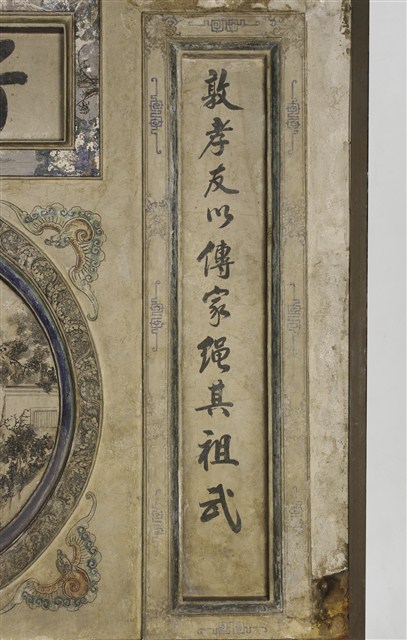 敦孝友以傳家繩其祖武